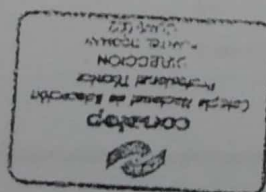 conalep
Colegio Nacional de Educación
Profesional Técnica
DIRECCION
PLANTEL TICOMAN